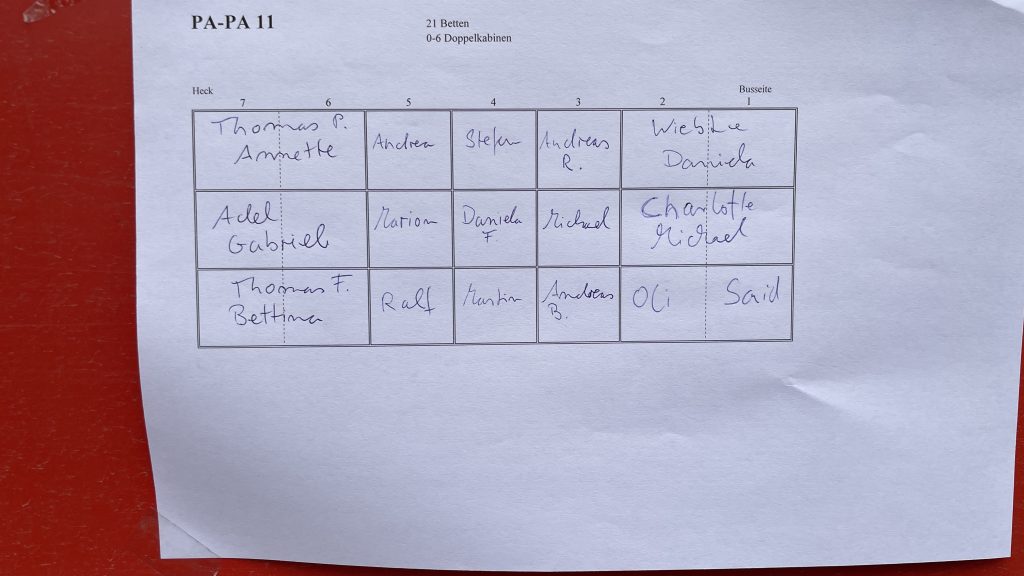 PA-PA 11
21 Betten
0-6 Doppelkabinen
Heck
Busseite
7 6 5 4 3 2 1
Thomas P.
Annette
Andrea
Stefan
Andreas
R.
Wiebke
Daniela
Adel
Gabriel
Marion
Daniela
F
Michael
Charlotte
Michael
Thomas F.
Bettina
Ralf
Martin
Andreas
B.
Oli
Said